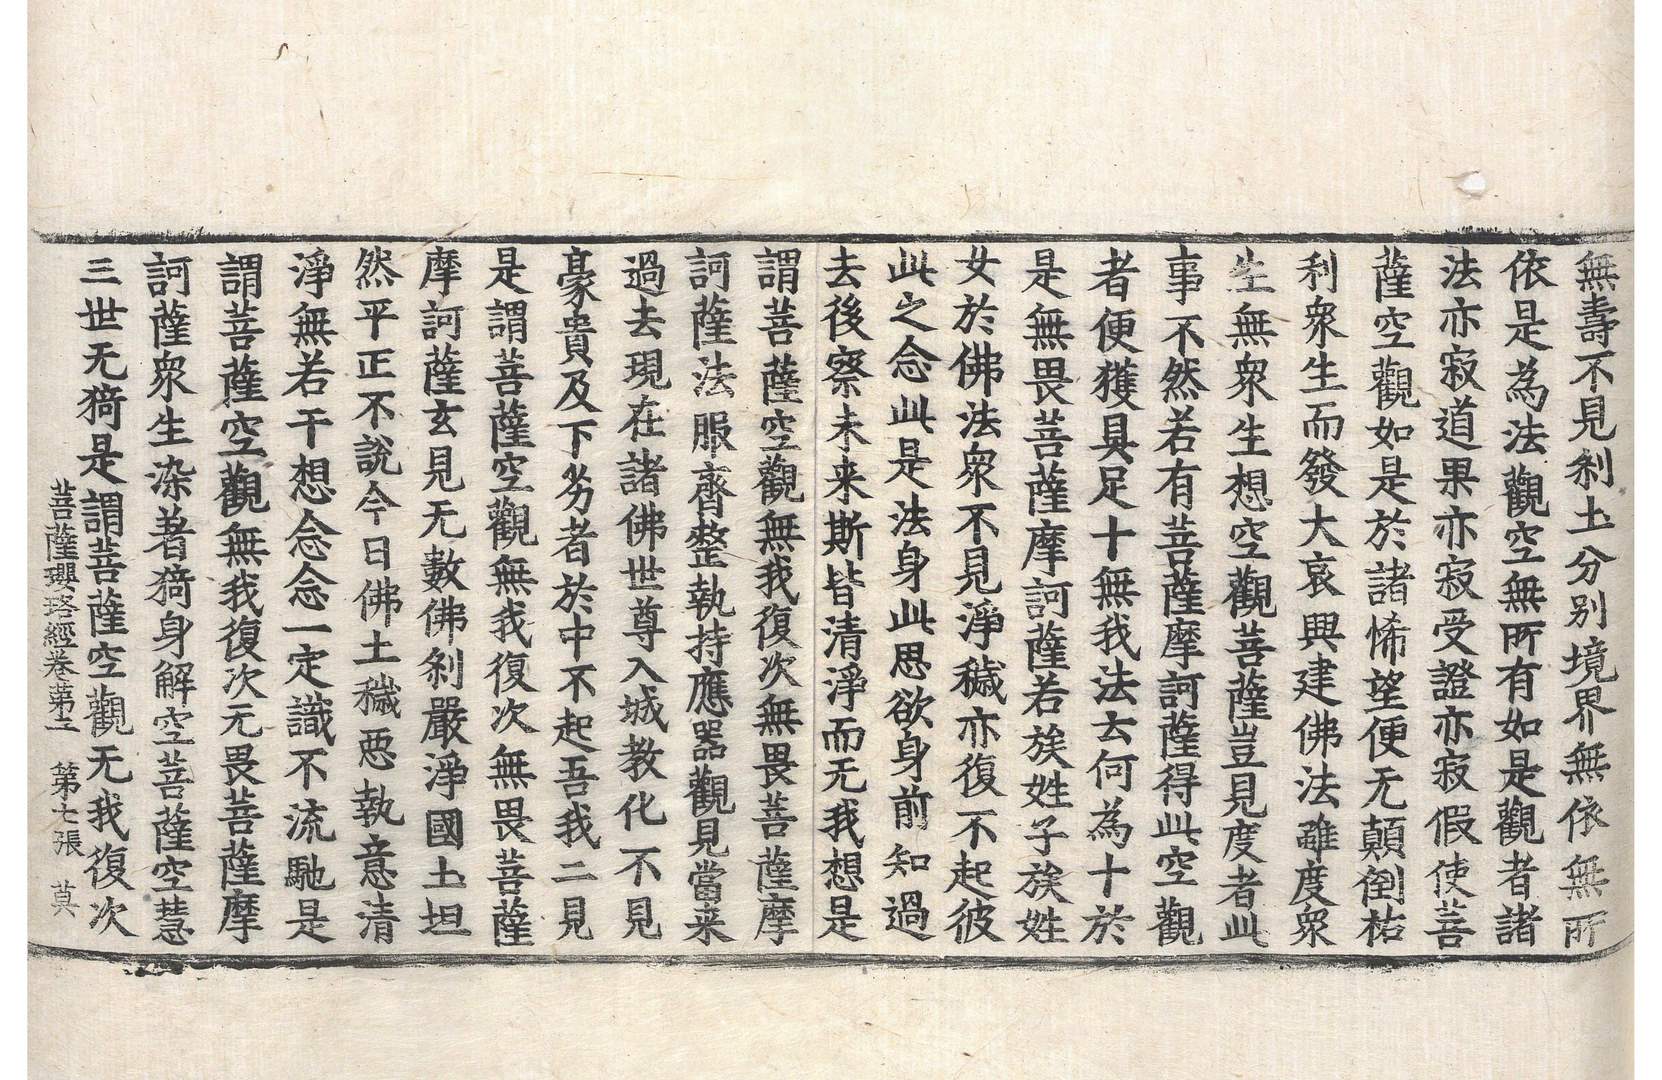 無壽不見刹土分别境界無依無所
依是為法觀空無所有如是觀者諸
法亦寂道果亦寂受證亦寂假使菩
薩空觀如是於諸悕望便无顛倒祐
利衆生而發大哀興建佛法雖度衆
生無衆生想空觀菩薩豈見度者此
事不然若有菩薩摩訶薩得此空觀
者便獲具足十無我法云何為十於
是無畏菩薩摩訶薩若族姓子族姓
女於佛法衆不見淨穢亦復不起彼
此之念此是法身此思欲身前知過
去後察未来斯皆清淨而无我想是
謂菩薩空觀無我復次無畏菩薩摩
訶薩法服齊整執持應器觀見當来
過去現在諸佛世尊入城教化不見
豪貴及下劣者於中不起吾我二見
是謂菩薩空觀無我復次無畏菩薩
摩訶薩玄見无數佛刹嚴淨國土坦
然平正不說今日佛土穢惡執意清
淨無若干想念念一定識不流馳是
謂菩薩空觀無我復次无畏菩薩摩
訶薩衆生染著猗身解空菩薩空慧
三世无猗是謂菩薩空觀无我復次
菩薩瓔珞經卷第十 第七張 莫